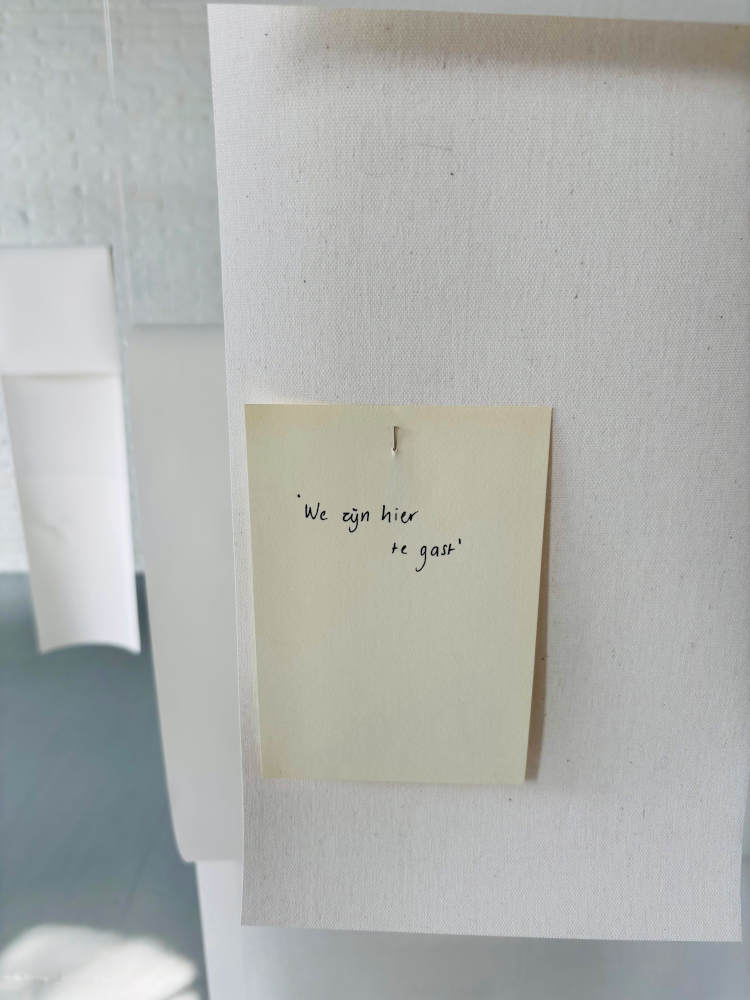 'We zijn hier
te gast'